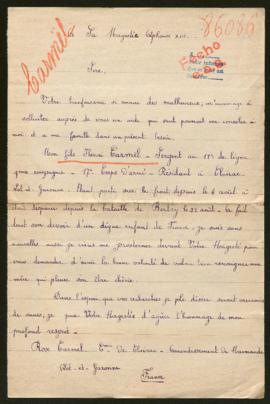 Carmél
86086
Sa Majestée Alphonse XIII.
Fecho
Sire.
Votre bienfaisance si connue des malheureux, m'encourage à
solliciter auprès de vous un aide qui sera pourrait me consoler
moi et a ma famille dans un pénible besoin.
Mon fils Henri Carmél - Sergent au 11e de ligne
compagnie - 17e Corps d'armée - Résidant à
Lot-et-Garonne - Étant parti avec le front depuis le 6 août et
étant disparu depuis la bataille de Bertrix le 22 août. La fait
tout son devoir d'un digne enfant de France, je suis sans
nouvelles aussi je viens me prosterner devant Votre Majesté pour
vous demander d'avoir la bonne volonté de vouloir bien renseigner une
mère qui pleure son être chérie.
Dans l'espoir que vos recherches je
de succès, je prie Votre Majestée d'agréer l'hommage de mon
profond respect.
Rose Carmel. Cne de - Arrondissement de Marmande
Lot-et-Garonne
France